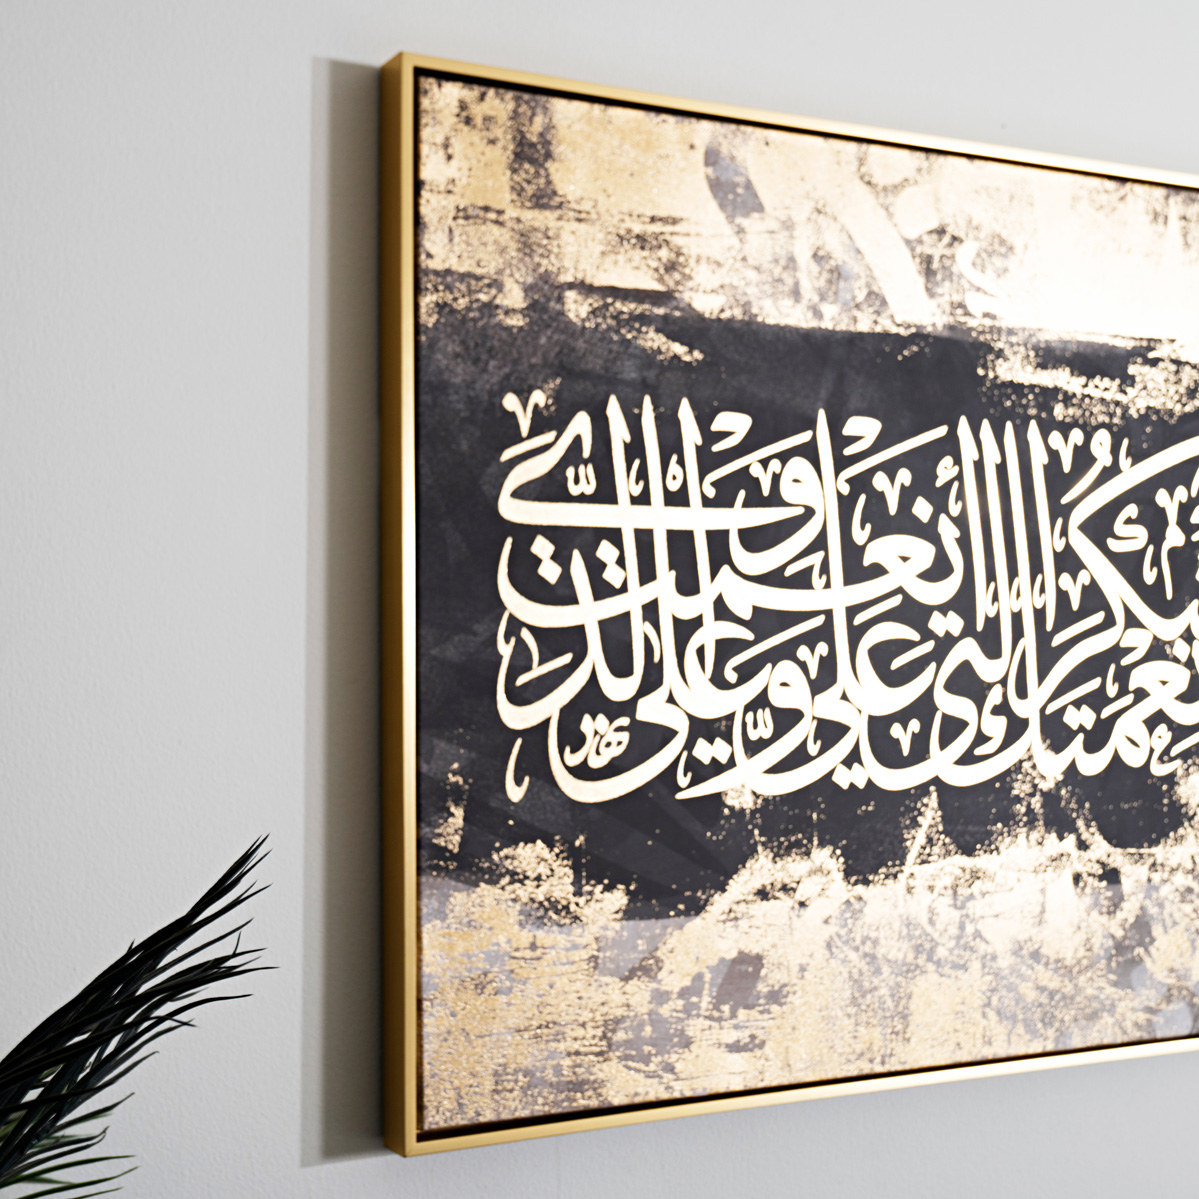 نعمتك التي أنعمت علي وعلى والدي